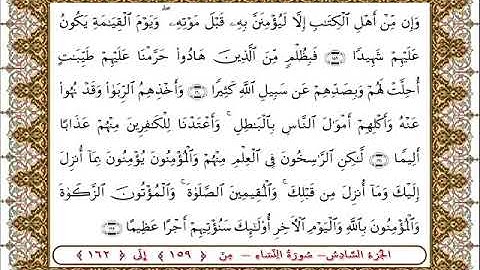 وَإِن مِّنْ أَهْلِ ٱلْكِتَٰبِ إِلَّا لَيُؤْمِنَنَّ بِهِۦ قَبْلَ مَوْتِهِۦ ۖ وَيَوْمَ ٱلْقِيَٰمَةِ يَكُونُ
عَلَيْهِمْ شَهِيدًا ﴿١٥٩﴾ فَبِظُلْمٍ مِّنَ ٱلَّذِينَ هَادُوا۟ حَرَّمْنَا عَلَيْهِمْ طَيِّبَٰتٍ
أُحِلَّتْ لَهُمْ وَبِصَدِّهِمْ عَن سَبِيلِ ٱللَّهِ كَثِيرًا ﴿١٦٠﴾ وَأَخْذِهِمُ ٱلرِّبَوٰا۟ وَقَدْ نُهُوا۟
عَنْهُ وَأَكْلِهِمْ أَمْوَٰلَ ٱلنَّاسِ بِٱلْبَٰطِلِ ۚ وَأَعْتَدْنَا لِلْكَٰفِرِينَ مِنْهُمْ عَذَابًا
أَلِيمًا ﴿١٦١﴾ لَّٰكِنِ ٱلرَّٰسِخُونَ فِى ٱلْعِلْمِ مِنْهُمْ وَٱلْمُؤْمِنُونَ يُؤْمِنُونَ بِمَآ أُنزِلَ
إِلَيْكَ وَمَآ أُنزِلَ مِن قَبْلِكَ ۚ وَٱلْمُقِيمِينَ ٱلصَّلَوٰةَ ۚ وَٱلْمُؤْتُونَ ٱلزَّكَوٰةَ
وَٱلْمُؤْمِنُونَ بِٱللَّهِ وَٱلْيَوْمِ ٱلْءَاخِرِ أُو۟لَٰٓئِكَ سَنُؤْتِيهِمْ أَجْرًا عَظِيمًا ﴿١٦٢﴾
الجزء السادس - سورة النساء - من ﴿ ١٥٩ ﴾ إلى ﴿ ١٦٢ ﴾